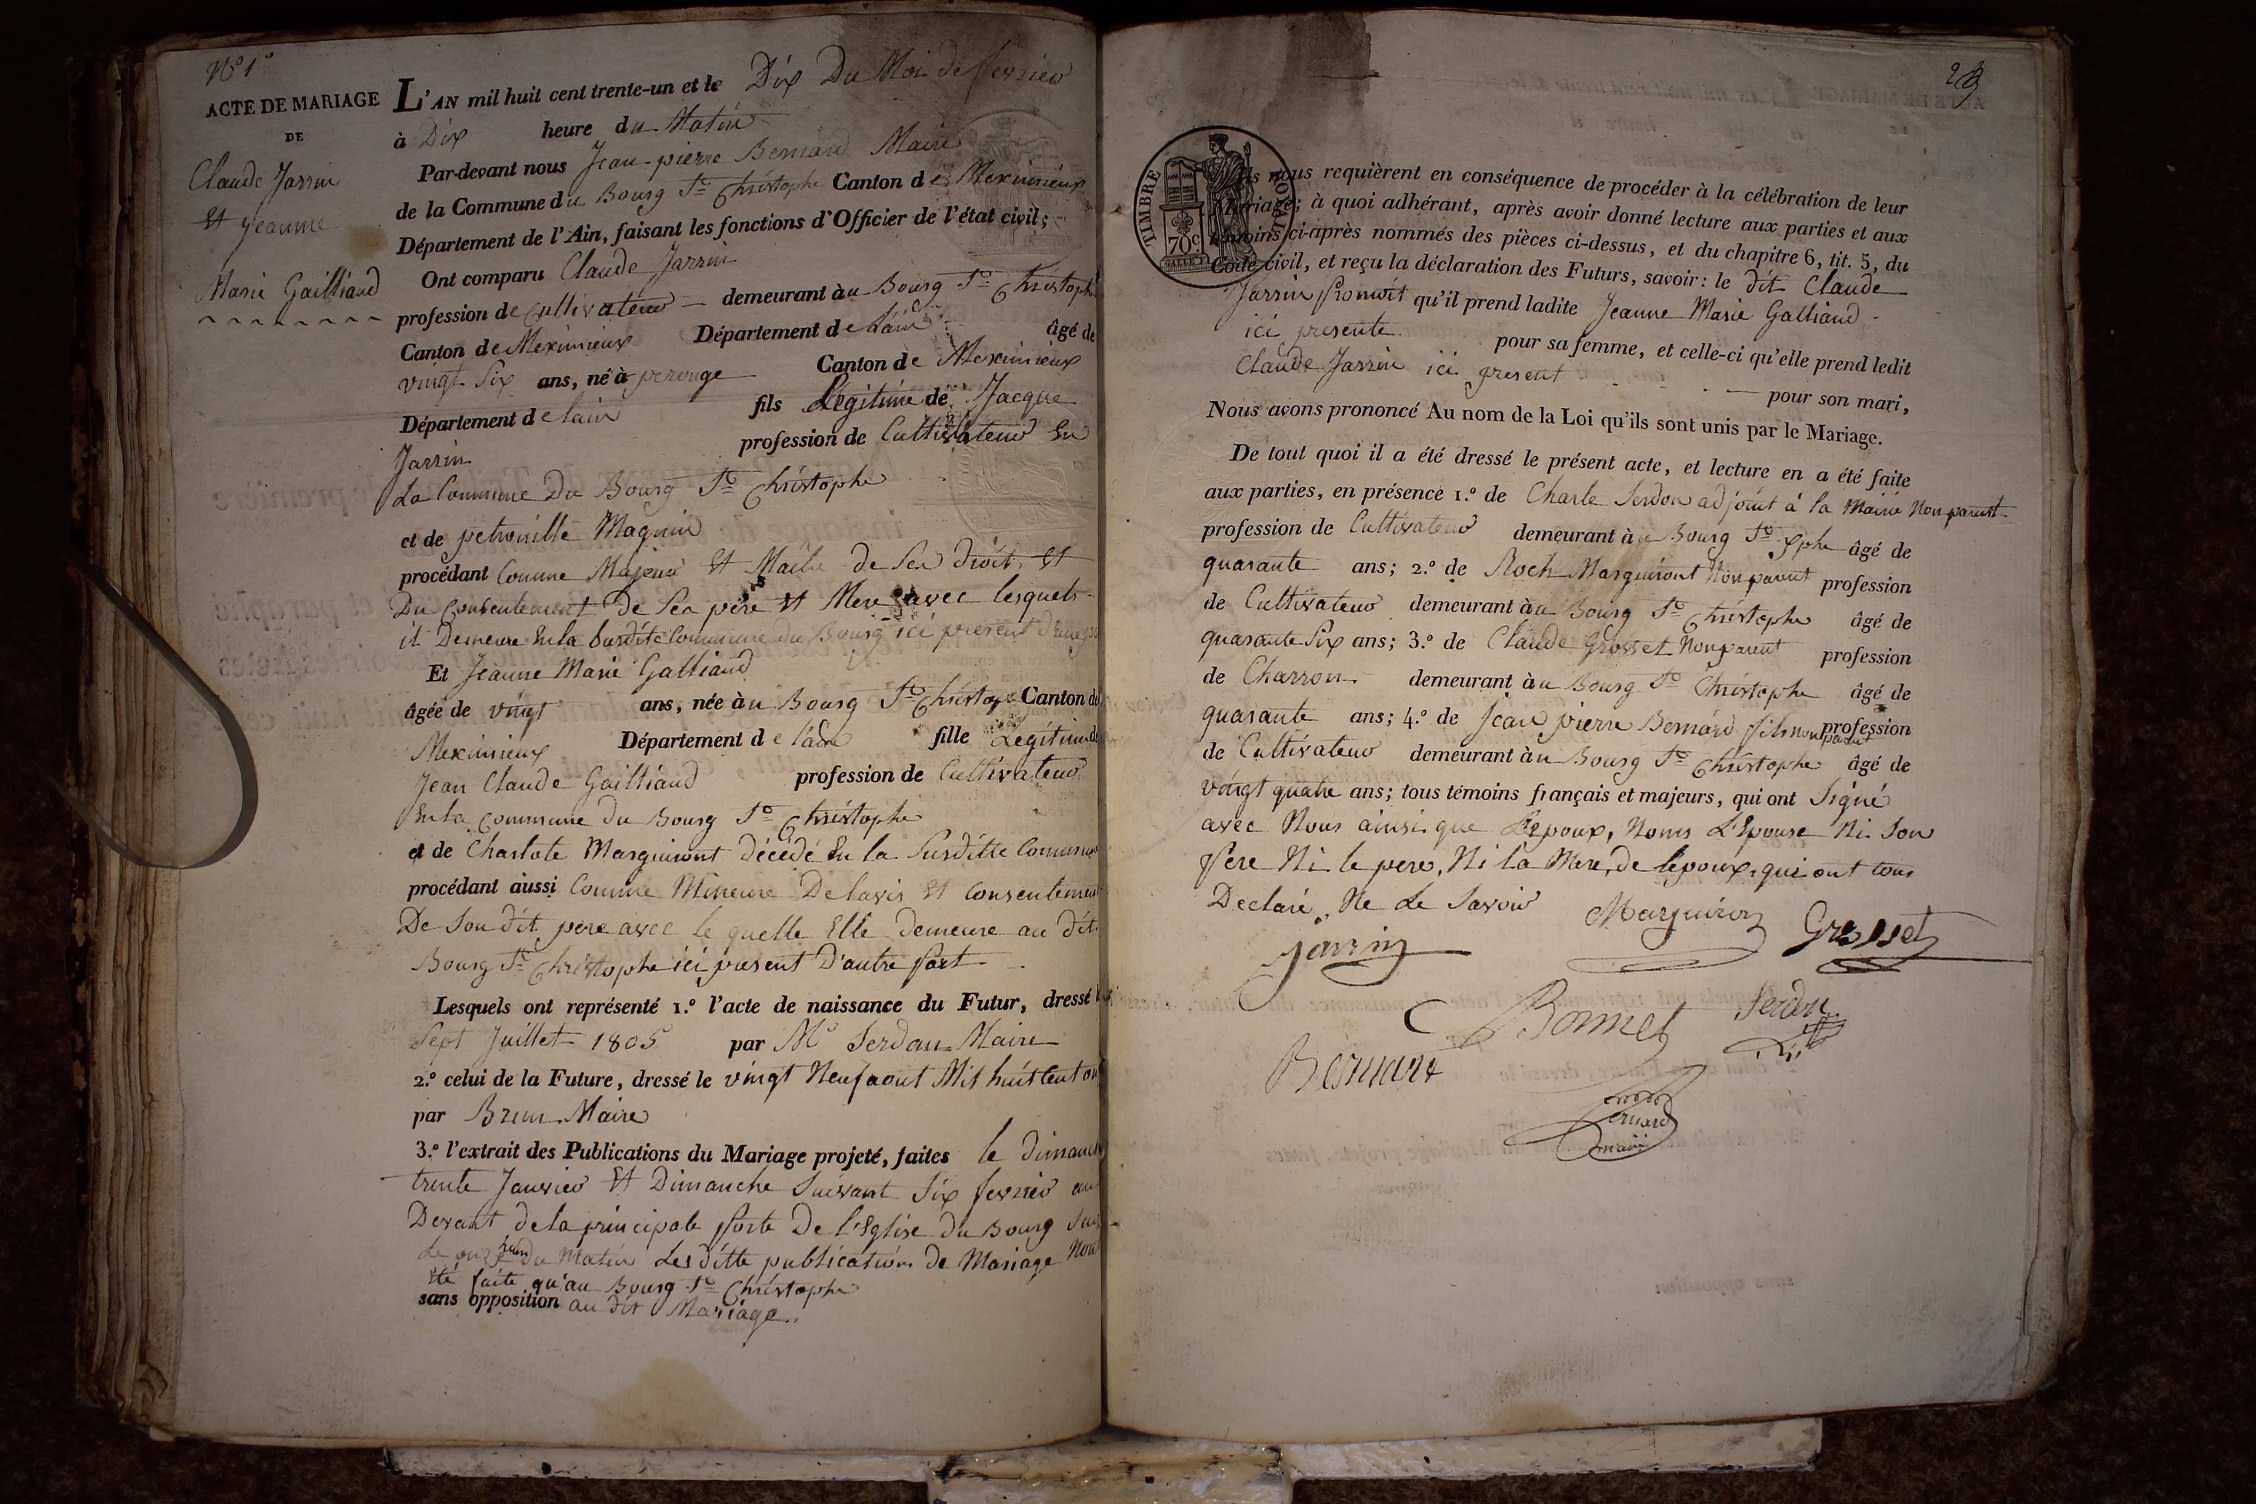 N° 1°
ACTE DE MARIAGE
DE
Claude Jarrin
Et Jeanne
Marie Gailliand
L'AN mil huit cent trente-un et le Dix Du Moi de fevrier
à Dix heure du Matin
Par-devant nous Jean-pierre Bernard Maire
de la Commune du Bourg St Christophe Canton de Meximieux
Département de l'Ain, faisant les fonctions d'Officier de l'état civil;
Ont comparu Claude Jarrin
profession de Cultivateur demeurant au Bourg St Christophe
Canton de Meximieux Département de L'ain âgé de
vingt Six ans, né à perouge Canton de Meximieux
Département de lain fils Légitime de Jacque
Jarrin profession de Cultivateur En
La Commune Du Bourg St Christophe
et de petronille Magnin
procédant Comme Majeur Et Maitre de Ses droit, Et
Du Consentement De Ses père Et Mere avec lesquels
il Demeure En la Susdite Commune du Bourg ici present d'une
Et Jeanne Marie Galliand
âgée de vingt ans, née au Bourg St Christophe Canton de
Meximieux Département de l'ain fille Légitime de
Jean Claude Gailliand profession de Cultivateur
En la Commune Du Bourg St Christophe
et de Charlote Marguiront décédé En la Susditte Commune
procédant aussi Comme Mineure De lavis Et Consentement
De Son dit père avec le quelle Elle demeure au dit
Bourg St Christophe ici present D'autre part
Lesquels ont représenté 1.° l'acte de naissance du Futur, dressé le
Sept Juillet 1805 par Mr Serdon Maire
2.° celui de la Future, dressé le vingt Neuf aout Mil huit Cent on
par Brun Maire
3.° l'extrait des Publications du Mariage projeté, faites le dimanch
trente Janvier Et Dimanche Suivant Six fevrier au
Devant de la principale Porte De l'Eglise du Bourg
du Matin Les ditte publication de Mariage Nont
été faite qu'au Bourg St Christophe
sans opposition au dit Mariage.
23
TIMBRE ROYAL
70c
Ils nous requièrent en conséquence de procéder à la célébration de leur
Mariage; à quoi adhérant, après avoir donné lecture aux parties et aux
témoins ci-après nommés des pièces ci-dessus, et du chapitre 6, tit. 5, du
Code civil, et reçu la déclaration des Futurs, savoir: le dit Claude
Jarrin Promoit qu'il prend ladite Jeanne Marie Galliand
ici presente pour sa femme, et celle-ci qu'elle prend ledit
Claude Jarrin ici present pour son mari,
Nous avons prononcé Au nom de la Loi qu'ils sont unis par le Mariage.
De tout quoi il a été dressé le présent acte, et lecture en a été faite
aux parties, en présence 1.° de Charle Serdon adjoint à la Mairie Non parent
profession de Cultivateur demeurant au Bourg St Xphe âgé de
quarante ans; 2.° de Roch Marguiront Non parent profession
de Cultivateur demeurant au Bourg St Christophe âgé de
quarante Six ans; 3.° de Claude Grosset Non parent profession
de Charron demeurant au Bourg St Christophe âgé de
quarante ans; 4.° de Jean pierre Bernard fils non parent profession
de Cultivateur demeurant au Bourg St Christophe âgé de
vingt quatre ans; tous témoins français et majeurs, qui ont Signé
avec Nous ainsi que L'Epoux, Noms L'Epouse Ni Son
Pere Ni le pere, Ni la Mere, de l'époux, qui ont tous
Declaré, Ne Le Savoir
Marguiron Grosset
Jarrin
Bonnet Serdon
Bernard
Bernard
maire